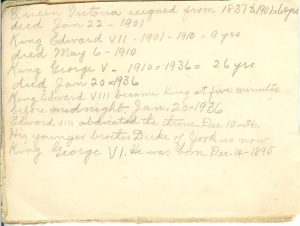 Queen Victoria reigned from 1837 to 1901=64yrs
died Jan 22 - 1901
King Edward VII - 1901-1910 = 9 yrs
died May 6 - 1910
King George V - 1910=1936= 26 yrs
died Jan 20=1936
King Edward VIII became King at five minutes
before midnight Jan. 20=1936
Edward VIII abdicated the throne Dec 10=36.
His younger brother Duke of York is now
King George VI. He was born Dec 14-1895